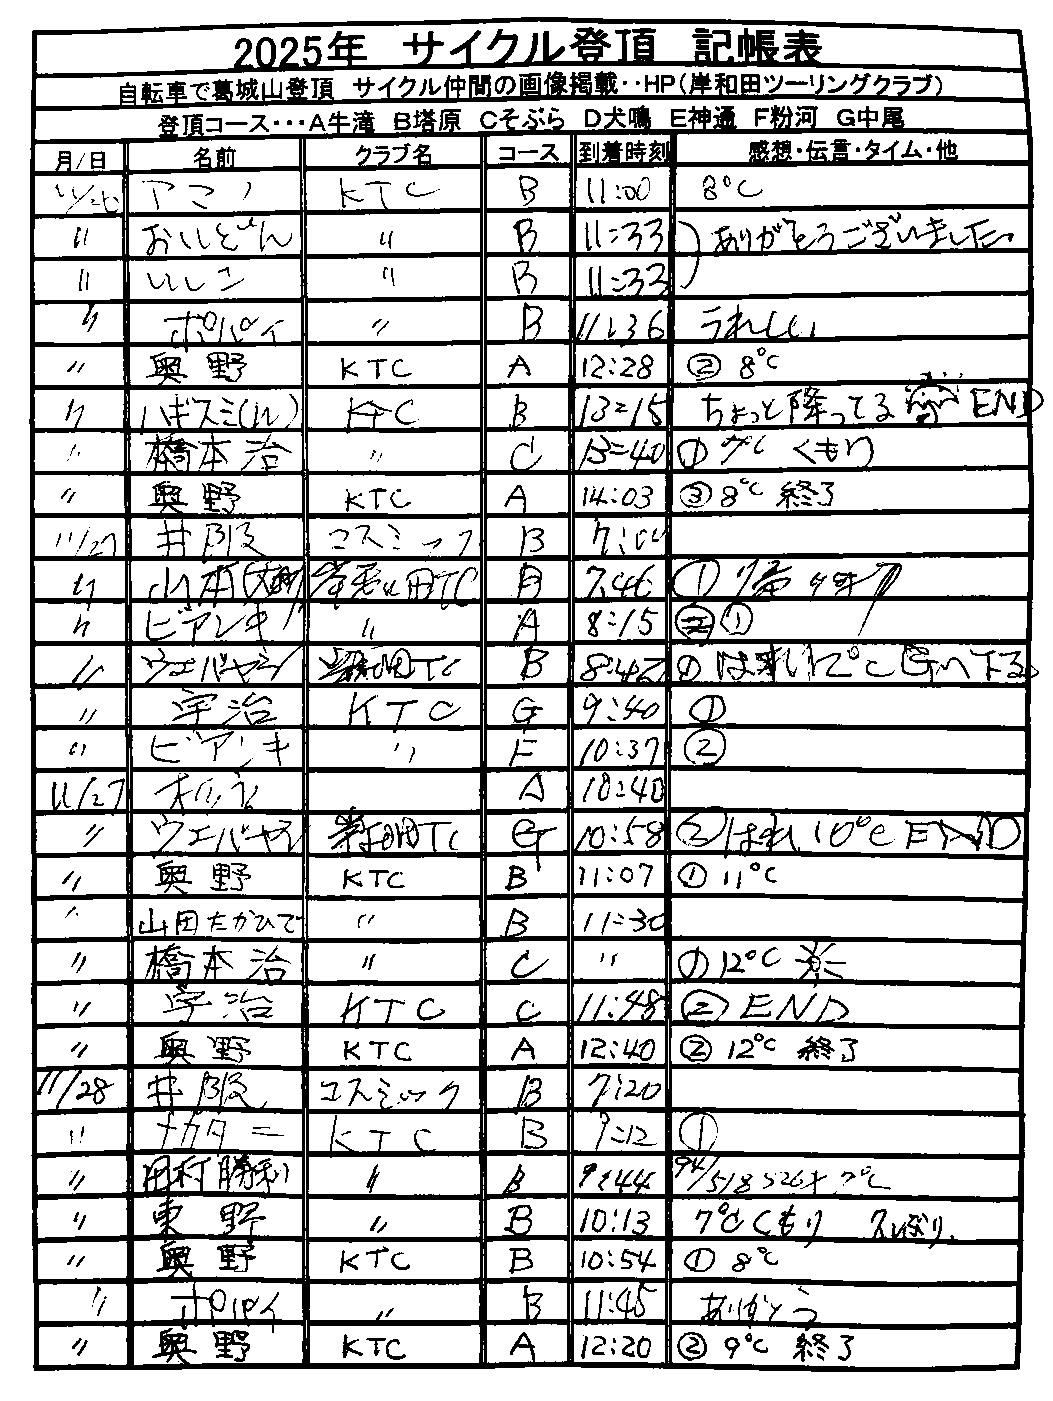 2025年 サイクル登頂 記帳表
自転車で葛城山登頂 サイクル仲間の画像掲載‥HP(岸和田ツーリングクラブ)
登頂コース･･･A牛滝 B塔原 Cそぶら D犬鳴 E神通 F粉河 G中尾
月/日 名前 クラブ名 コース 到着時刻 感想・伝言・タイム・他
アマノ KTC B 11:00 8℃
〃 おいどん 〃 B 11:33 ありがとうございました。
〃 〃 B 11:33
〃 ポパイ 〃 B 11:36 うれしい
〃 奥野 KTC A 12:28 ② 8℃
〃 ハギスミ(ル) KTC B 13=15 ちょっと降ってる END
〃 橋本治 〃 C 13=40 ① 7℃ くもり
〃 奥野 KTC A 14:03 ③ 8℃ 終了
11/27 井阪 コスミック B 7:00
〃 山本 岸和田TC B 7:46 ①
〃 ビアンキ 〃 A 8:15 ①
〃 ウエバヤシ 岸和田TC B ① は 下る
〃 宇治 KTC G 9:40 ①
〃 ビアンキ 〃 F 10:37 ②
11/27 A 10:40
〃 ウエバヤシ 岸和田TC G 10:58 ② はれ 10℃ END
〃 奥野 KTC B 11:07 ① 11℃
〃 山田たかひで 〃 B 11:30
〃 橋本治 〃 C 〃 ① 12℃
〃 宇治 KTC C 11:48 ② END
〃 奥野 KTC A 12:40 ② 12℃ 終了
11/28 井阪 コスミック B 7:20
〃 ナカタニ KTC B 9:12 ①
〃 田村勝利 〃 B 9:44
〃 東野 〃 B 10:13 7℃ くもり 久しぶり。
〃 奥野 KTC B 10:54 ① 8℃
〃 ポパイ 〃 B 11:45 ありがとう
〃 奥野 KTC A 12:20 ② 9℃ 終了